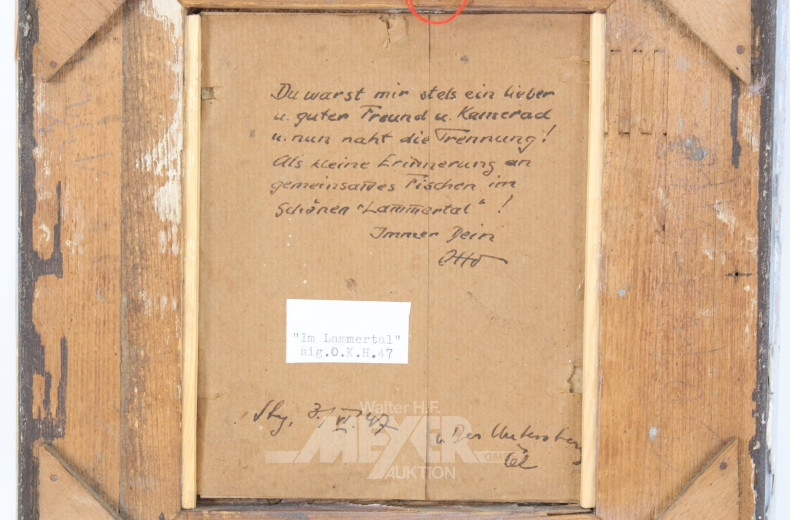 Du warst mir stets ein lieber
u. guter Freund u. Kamerad
u. nun naht die Trennung!
Als kleine Erinnerung an
gemeinsames Fischen im
schönen "Lammertal"!
Immer Dein
Otto
"Im Lammertal"
sig.O.K.H.47
Walter H.F.
MEYER
GMBH
AUKTION
Sbg, 3. VI. 47
Der Untersberg